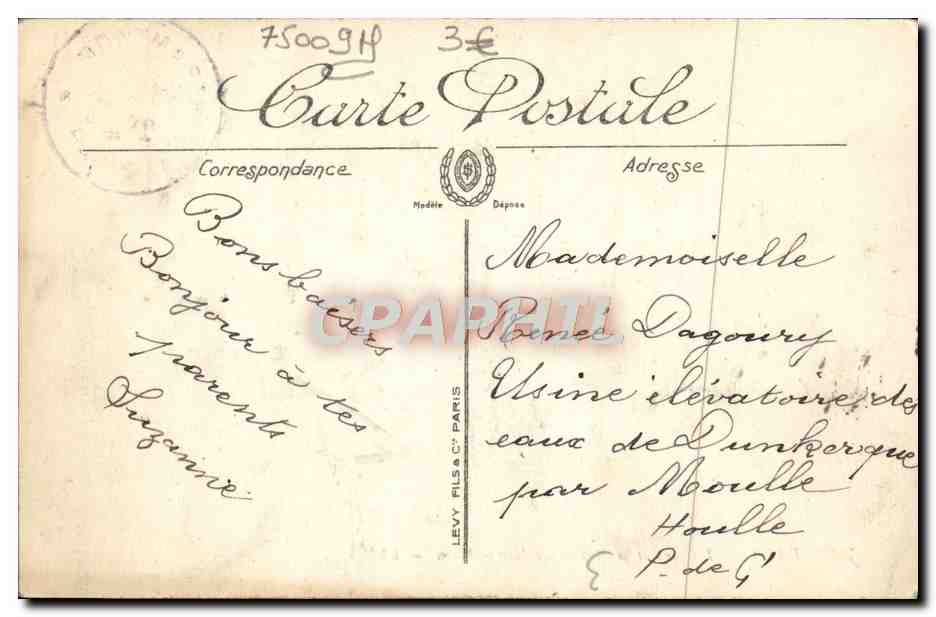 75009H 3€
Carte Postale
Correspondance
Adresse
Modèle Déposé
Bons baisers
Bonjour à tes
parents
Suzanne
LEVY FILS & Cie PARIS
Mademoiselle
Reneé Dagoury
Usine élévatoire des
eaux de Dunkerque
par Moulle
Houlle
P. de C
CPAPHIL